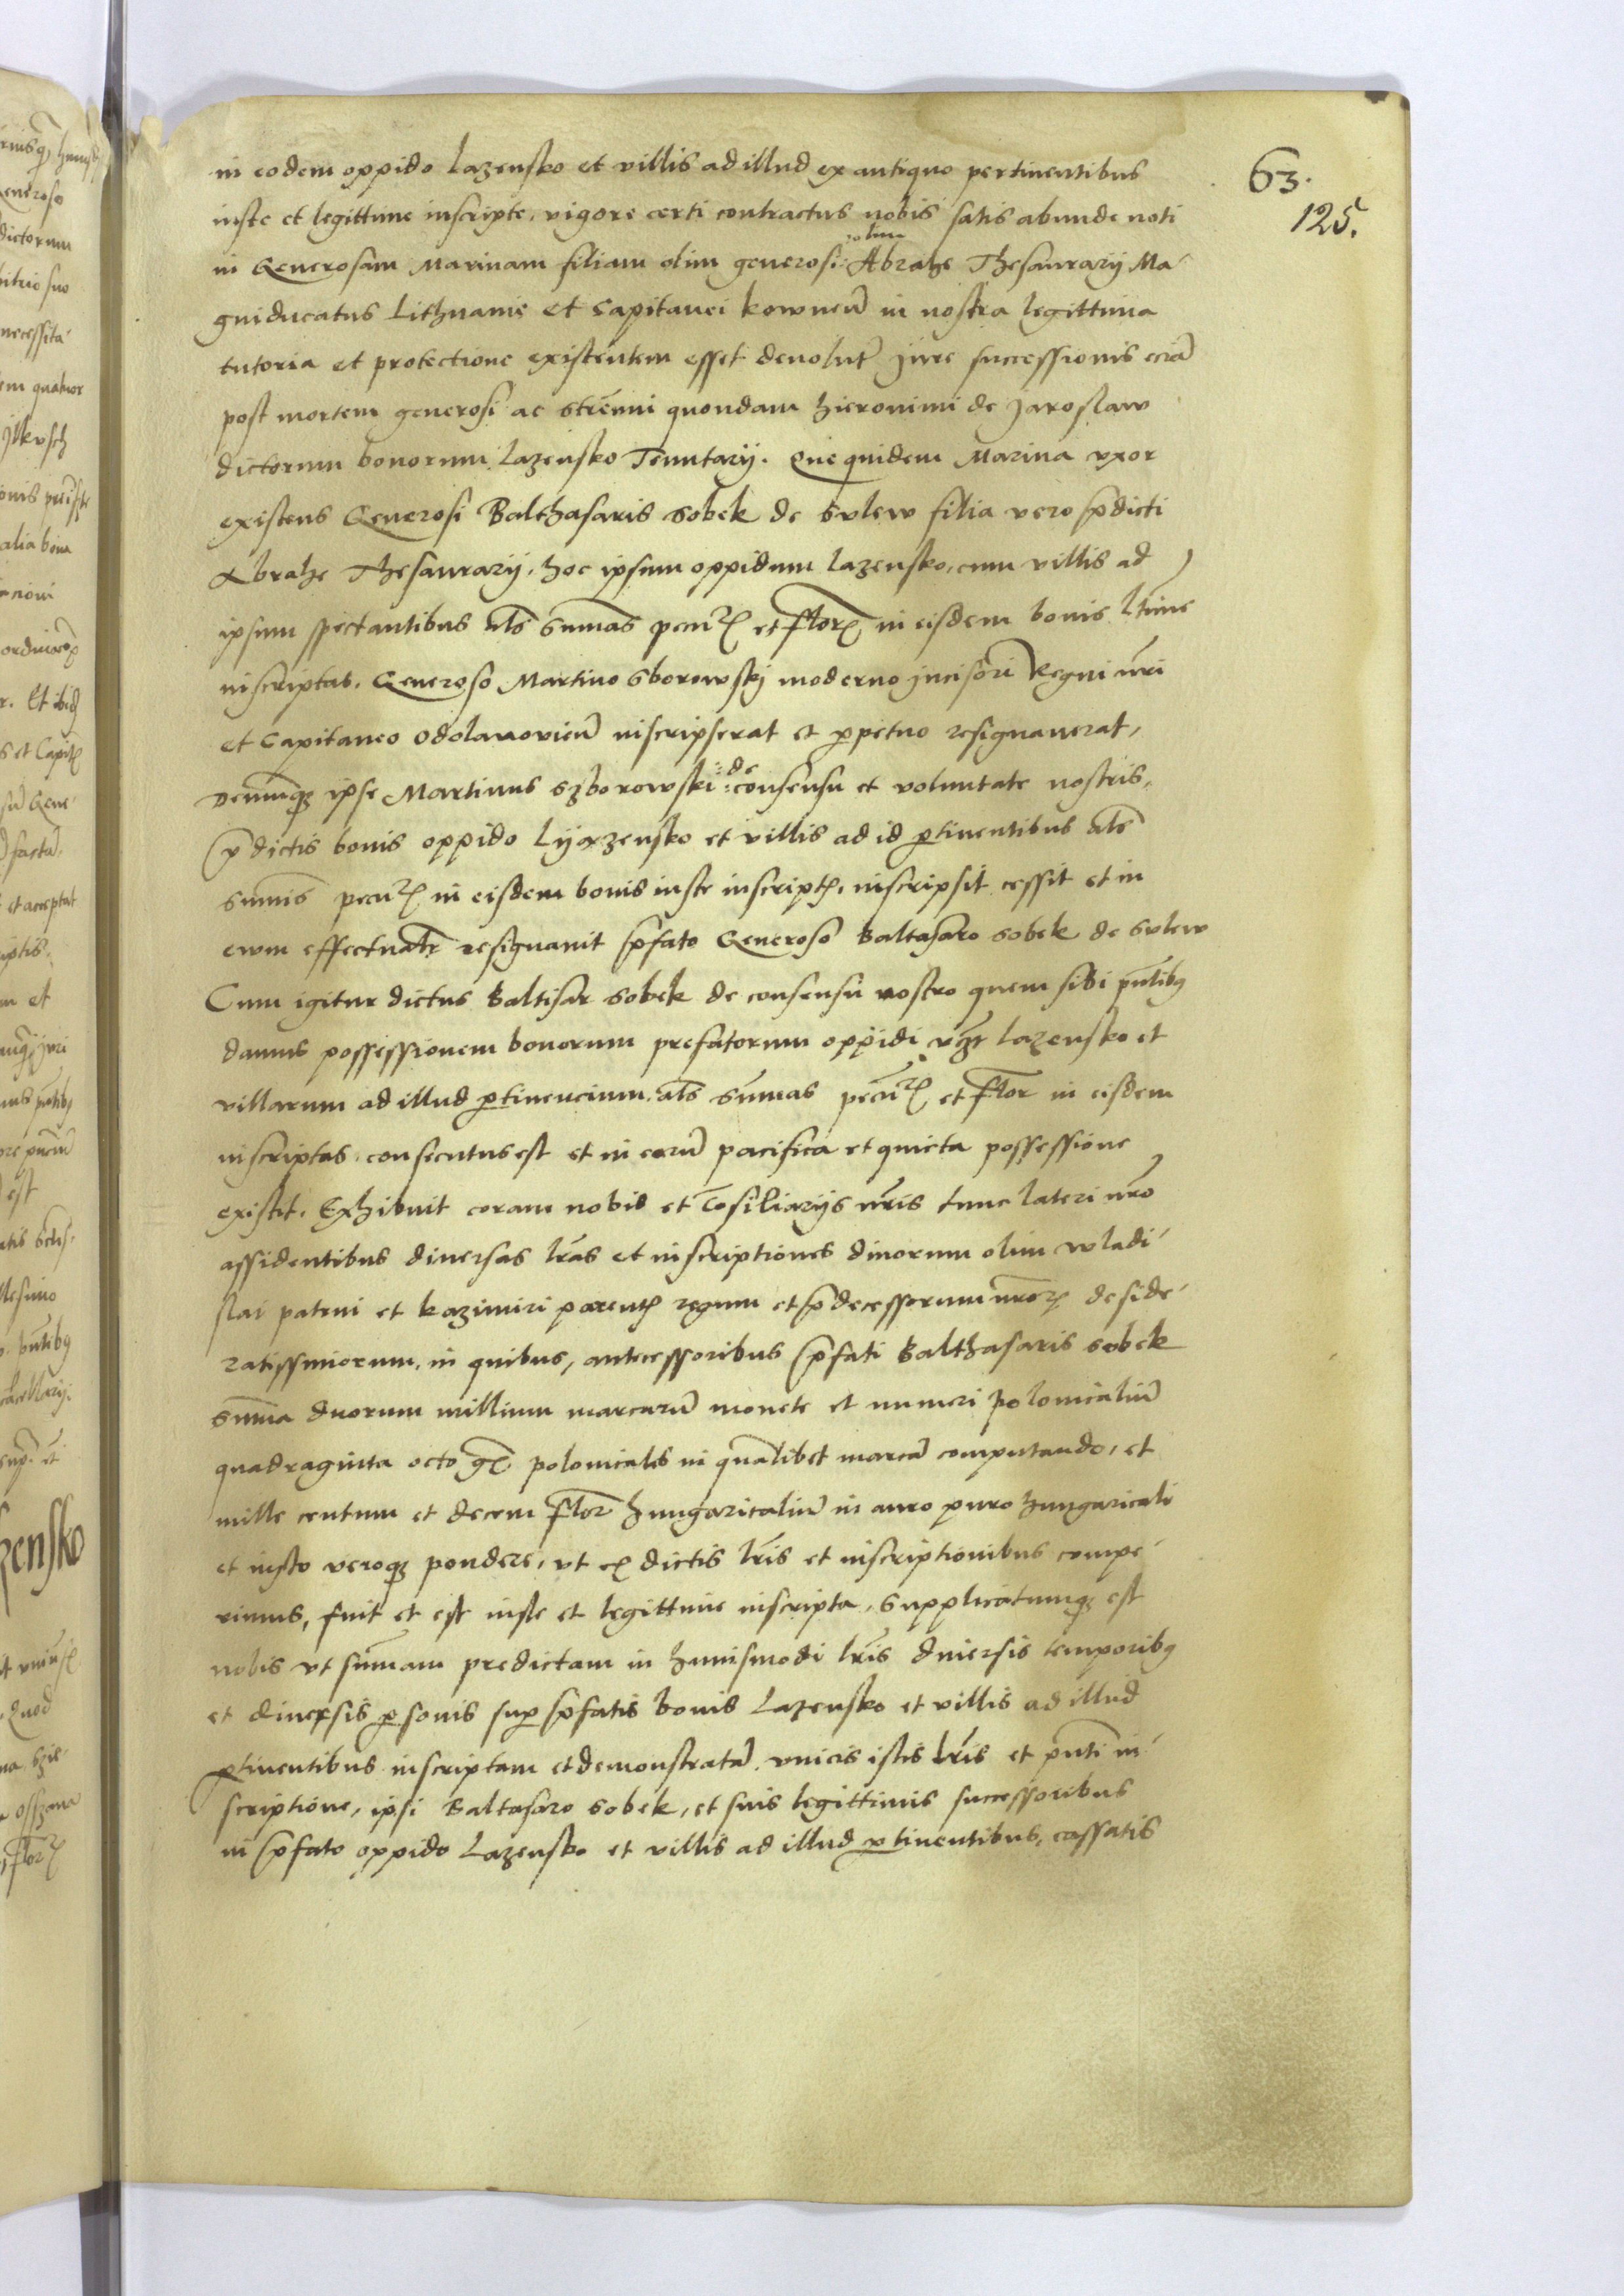 63.
125.
in eodem oppido Lazensko et villis ad illud ex antiquo pertinentibus
iuste et legittime inscripte, vigore certi contractus nobis satis abunde noti
olim
in Generosam Marinam filiam olim generosi Abrahe Thesaurarij Ma-
gniducatus Lithuanie et Capitanei kownen̄ in nostra legittima
tutoria et protectione existentem esset devolut Jure successionis eciā
post mortem generosi ac strenui quondam Hieronimi de Jaroslaw
dictorum bonorum Lazensko Tenutarij. Que quidem Marina vxor
existens Generosi Balthasaris Sobek de Sulew filia vero p̄dicti
Abrahe Thesaurarij, hoc ipsum oppidum Lazensko, cum villis ad
ipsum spectantibus al̄s sum̄as pecuꝝ et floꝝ in eisdem bonis l̄time
inscriptas, Generoso Martino Sborowskj moderno Jncisori Regni nr̄i
et Capitaneo Odolanovien̄ inscripserat et ꝑpetuo resignaverat,
de
Demumqꝫ ipse Martinus Szborowski consensu et voluntate nostris,
p̄dictis bonis oppido Lyazensko et villis ad id ꝑtinentibus al̄s
sum̄is pecuꝝ in eisdem bonis iuste inscript, inscripsit cessit et in
evum effectualr resignauit p̄fato Generoso Baltasaro Sobek de Sulew
Cum igitur dictus Baltisar Sobek de consensu nostro quem sibi pn̄tibꝯ
damus possessionem bonorum prefatorum oppidi vꝫ Lazensko et
villarum ad illud ꝑtinencium, al̄s sum̄as pecuꝝ et flor in eisdem
inscriptas, consecutus est et in earū pacifica et quieta possessione
existit, Exhibuit coram nobis et Cōsiliarijs nr̄is tunc lateri nr̄o
assidentibus diuersas lr̄as et inscriptiones diuorum olim Wladi-
slai patrui et kazimiri parent regum et p̄decessorum nr̄oꝝ deside-
ratissimorum, in quibus, antecessoribus p̄fati Balthasaris Sobek
sum̄a duorum millium marcarū monete et numeri polonicaliū
quadraginta octo gꝝ polonicales in qualibet marcā computando, et
mille centum et decem flor hungaricaliū in auro puro hungaricali
et iusto veroqꝫ pondere, vt ex dictis lr̄is et inscriptionibus compe-
rimus, fuit et est iuste et legittime inscripta, Supplicatumqꝫ est
nobis vt sum̄am predictam in huiusmodi lr̄is diuersis temporibꝯ
et diuersis ꝑsonis suꝑ p̄fatis bonis Lazensko et villis ad illud
ꝑtinentibus inscriptam et demonstratā, vnicis istis lr̄is et pn̄ti in-
scriptione, ipsi Baltasaro Sobek, et suis legittimis successoribus
in p̄fato oppido Lazensko et villis ad illud ꝑtinentibus, cassatis